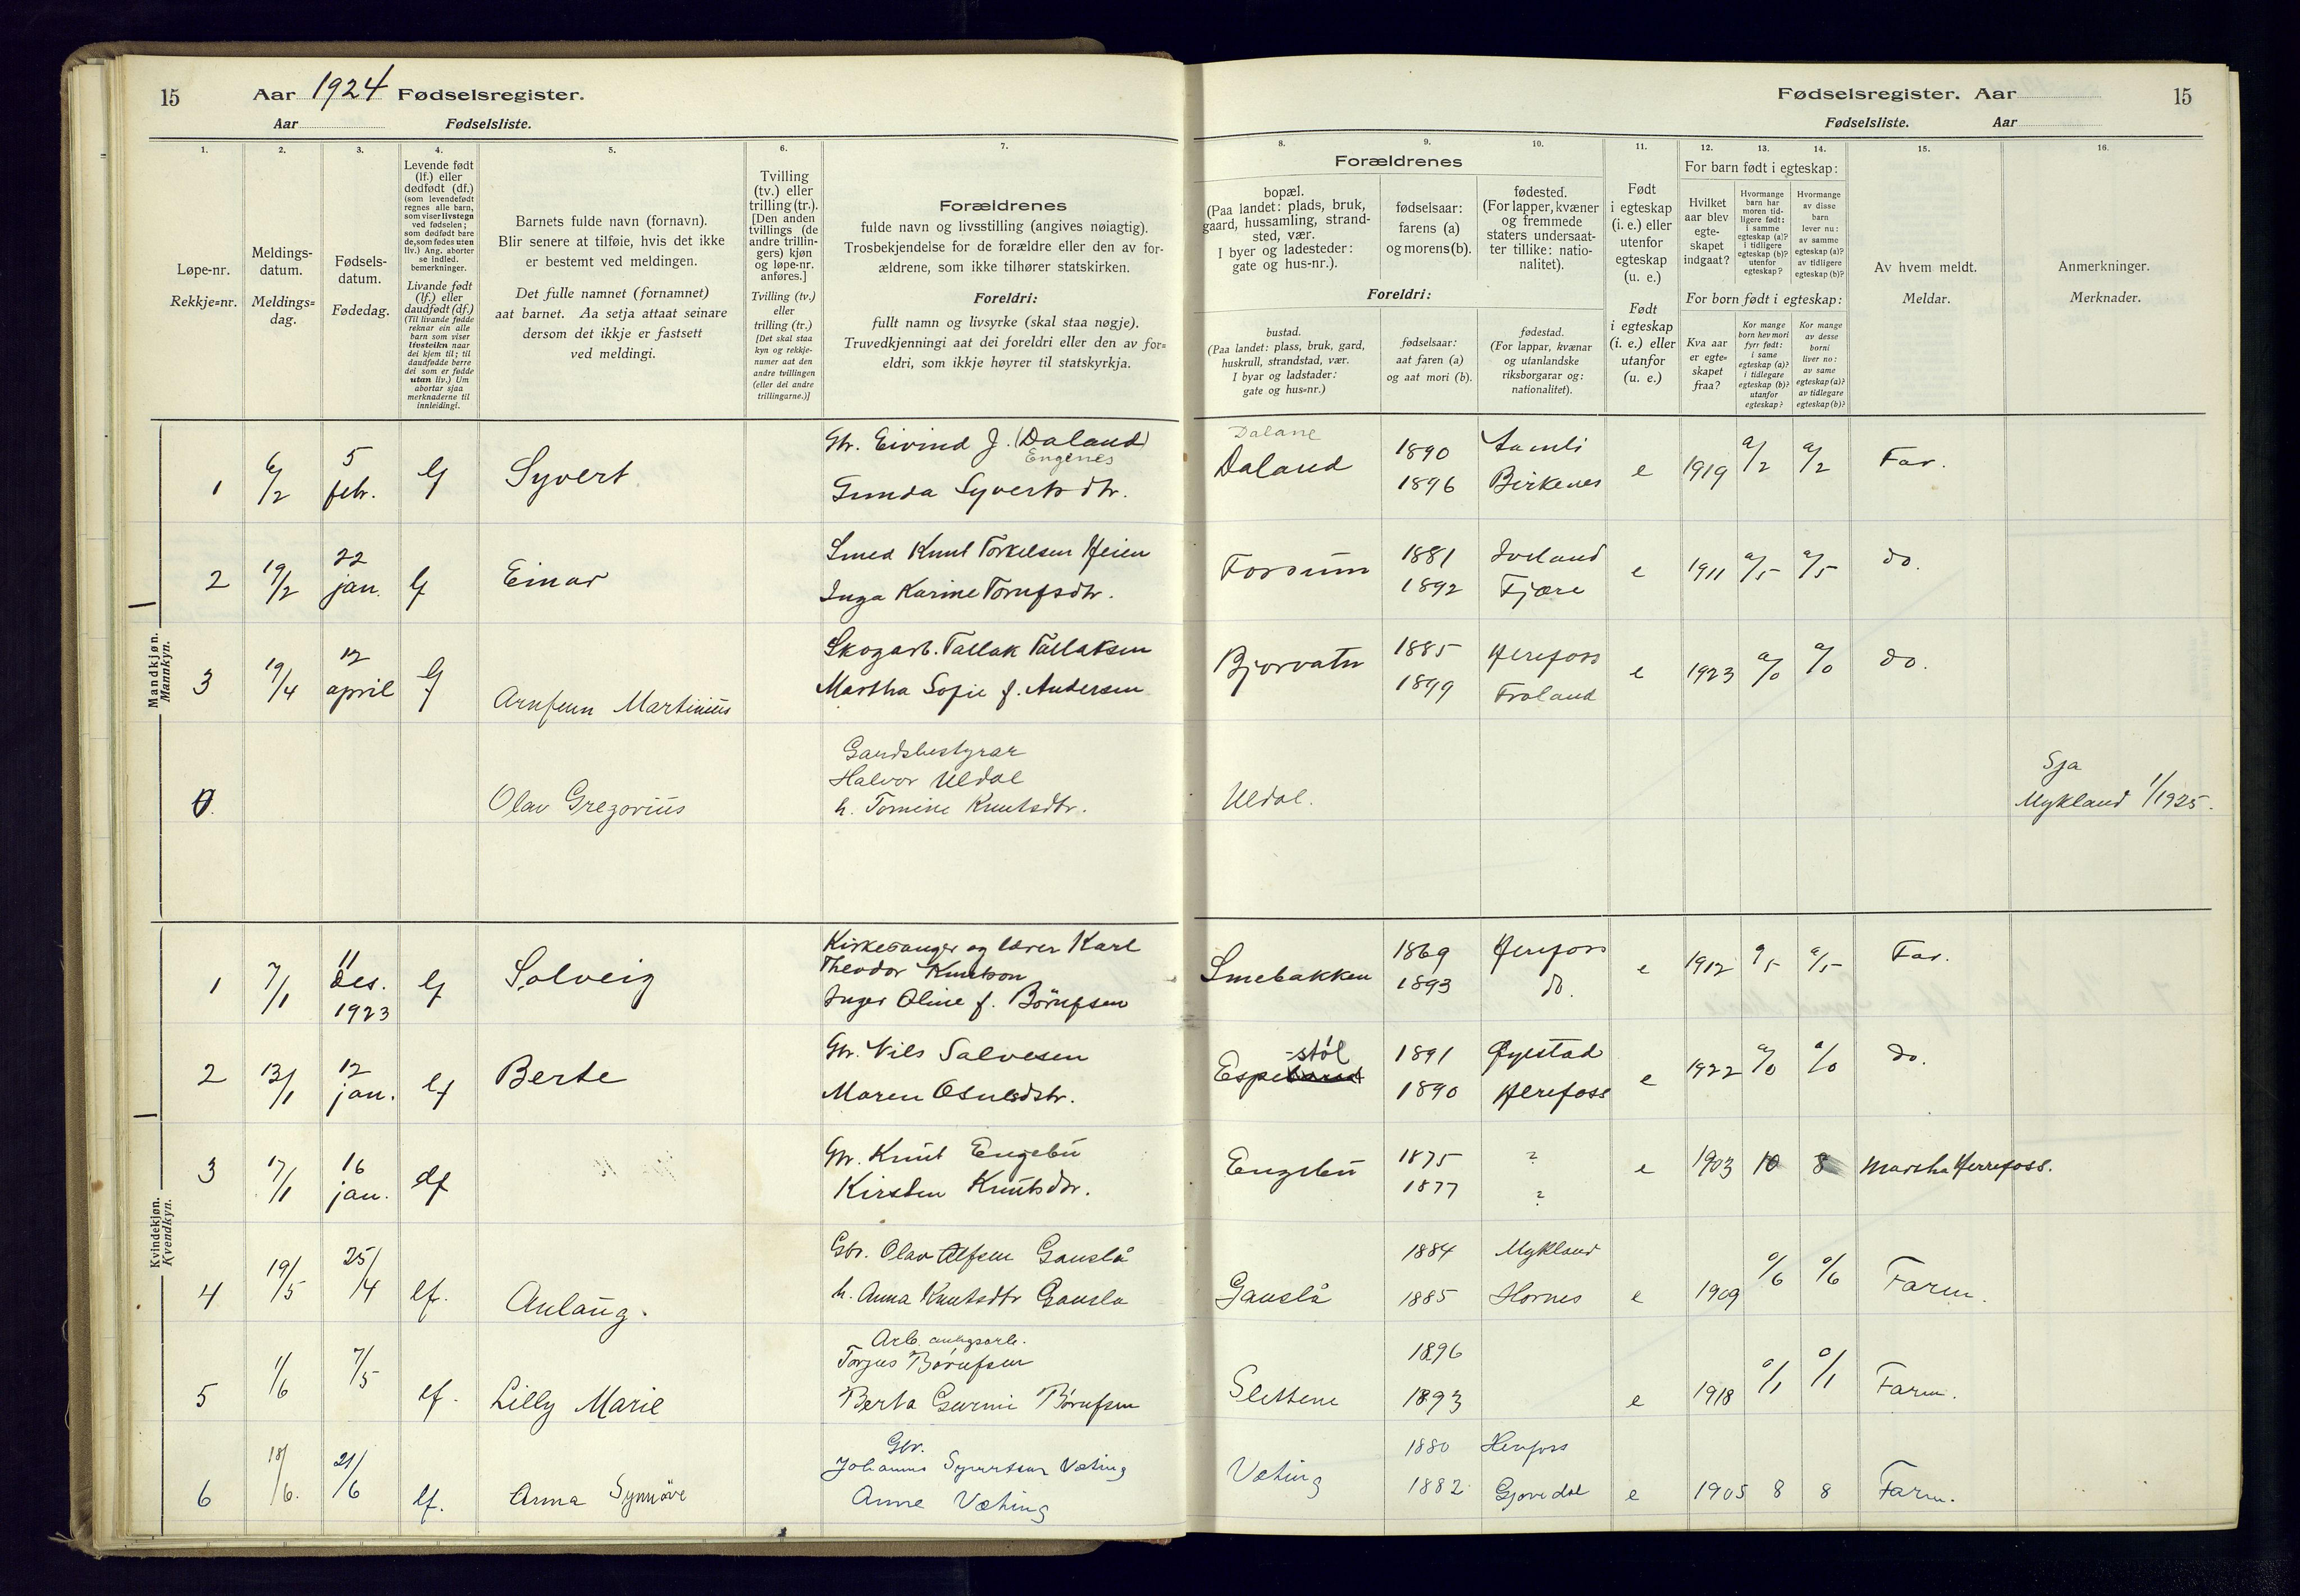 15
Aar 1924 Fødselsregister.
Aar Fødselsliste.
Fødselsregister. Aar
15
Fødselsliste. Aar
1.
2.
3.
4.
5.
6.
7.
8.
9.
10.
11.
12.
13.
14.
15.
16.
Løpe-nr.
Rekkje=nr.
Meldings-
datum.
Meldings=
dag.
Fødsels-
datum.
Fødedag.
Levende født
(lf.) eller
dødfødt (df.)
(som levendefødt
regnes alle barn,
som viser livstegn
ved fødselen;
som dødfødt bare
de, som fødes uten
liv.) Ang. aborter
se indled.
bemerkninger.
Livande født
(lf.) eller
daudfødt (df.)
(Til livande fødde
reknar ein alle
barn som viser
livsteikn naar
dei kjem til; til
daudfødde berre
dei som er fødde
utan liv.) Um
abortar sjaa
merknaderne til
innleidingi.
Barnets fulde navn (fornavn).
Blir senere at tilføie, hvis det ikke
er bestemt ved meldingen.
Det fulle namnet (fornamnet)
aat barnet. Aa setja attaat seinare
dersom det ikkje er fastsett
ved meldingi.
Tvilling
(tv.) eller
trilling (tr.).
[Den anden
tvillings (de
andre trillin-
gers) kjøn
og løpe-nr.
anføres.]
Tvilling (tv.)
eller
trilling (tr.)
[Det skal staa
kyn og rekkje-
numer aat den
andre tvillingen
(eller dei andre
trillingarne.)]
Forældrenes
fulde navn og livsstilling (angives nøiagtig).
Trosbekjendelse for de forældre eller den av for-
ældrene, som ikke tilhører statskirken.
Foreldri:
fullt namn og livsyrke (skal staa nøgje).
Truvedkjenningi aat dei foreldri eller den av for=
eldri, som ikkje høyrer til statskyrkja.
Forældrenes
bopæl.
(Paa landet: plads, bruk,
gaard, hussamling, strand-
sted, vær.
I byer og ladesteder:
gate og hus-nr.).
fødselsaar:
farens (a)
og morens (b).
fødested.
(For lapper, kvæner
og fremmede
staters undersaat-
ter tillike: natio-
nalitet).
Foreldri:
bustad.
(Paa landet: plass, bruk, gard,
huskrull, strandstad, vær.
I byar og ladstader:
gate og hus=nr.)
fødselsaar:
aat faren (a)
og aat mori (b).
fødestad.
(For lappar, kvænar
og utanlandske
riksborgarar og:
nationalitet).
Født
i egteskap
(i. e.) eller
utenfor
egteskap
(u. e.)
Født
i egteskap
(i. e.) eller
utanfor
(u. e.)
For barn født i egteskap:
Hvilket
aar blev
egte-
skapet
indgaat?
Hvormange
barn har
moren tid-
ligere født:
i samme
egteskap (a)?
i tidligere
egteskap (b)?
utenfor
egteskap?
Hvormange
av disse
barn
lever nu:
av samme
egteskap (a)?
av tidligere
egteskap (b)?
For born født i egteskap:
Kva aar
er egte=
skapet
fraa?
Kor mange
born hev mori
fyrr født:
i same
egteskap (a)?
i tidlegare
egteskap (b)?
utanfor
egteskap?
Kor mange
av desse
borni
liver no:
av same
egteskap (a)?
av tidlegare
egteskap (b)?
Av hvem meldt.
Meldar.
Anmerkninger.
Merknader.
Mandkjøn.
Mannkyn.
1 6/2 5 febr. lf Syvert Gbr. Eivind J. (Daland) Engenes
Gunda Syvertsdtr.
Dalane
Daland 1890 1896 Aamli Birkenes e 1919 a/2 a/2 Far.
2 19/2 22 jan. lf Einar Smed Knut Torkelsen Heien
Inga Karine Tomasdtr.
Fossum 1881 1892 Iveland Fjære e 1911 a/5 a/5 do.
3 19/4 12 april lf Arnfinn Martinius Skogarb. Tallak Tallaksen
Martha Sofie f. Andersen
Bjorvatn 1885 1899 Herefoss Froland e 1923 a/0 a/0 do.
0. Olav Gregorius Gardsbestyrar
Halvor Uldal
h. Tomine Knutsdtr.
Uldal. Sja
Mykland 1/1925.
Kvindekjøn.
Kvendkyn.
1 7/1 11 des. 1923 lf Solveig Kirkesanger og lærer Karl
Theodor Knutson
Inger Oline f. Børufsen
Smebakken 1869 1893 Herefoss do. e 1912 a/5 a/5 Far.
2 13/1 12 jan. lf Berte Gbr. Nils Salvesen
Maren Osuldsdtr.
Espestøl 1891 1890 Øyestad Herefoss e 1922 a/0 a/0 do.
3 17/1 16 jan. df Gbr. Knut Engebu
Kirsten Knutsdtr.
Engebu 1875 1877 ? ? e 1903 10 8 Martha Herrefoss.
4 19/5 25/4 lf. Anlaug. Gbr. Olav Alfsen Gauslå
h. Anna Knutsdtr Gausla
Gauslå 1884 1885 Mykland Hornes e 1909 a/6 a/6 Faren.
5 1/6 7/5 lf. Lilly Marie Arb. anlegsarb.
Torjus Børufsen
Berta Gurine Børufsen
Slettene 1896 1893 e 1918 a/1 a/1 Faren.
6 18/6. 21/6 lf. Anna Synnøve Gbr.
Johannes Syvertsen Væting
Anne Væting
Væting 1880 1882 Herefoss Gjøvedal e 1905 8 8 Faren.